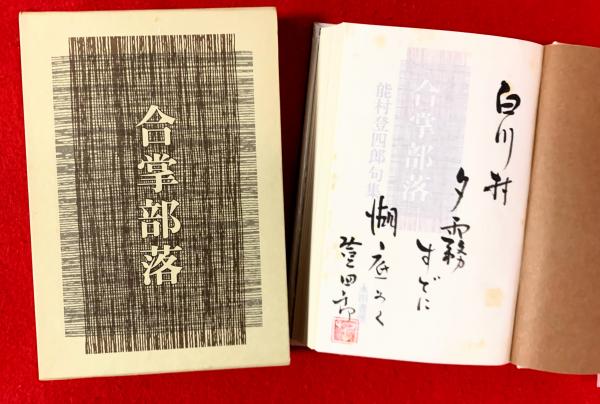 合掌部落
白川村
夕霧
すでに
湖底めく
登四郎
合掌部落
能村登四郎句集